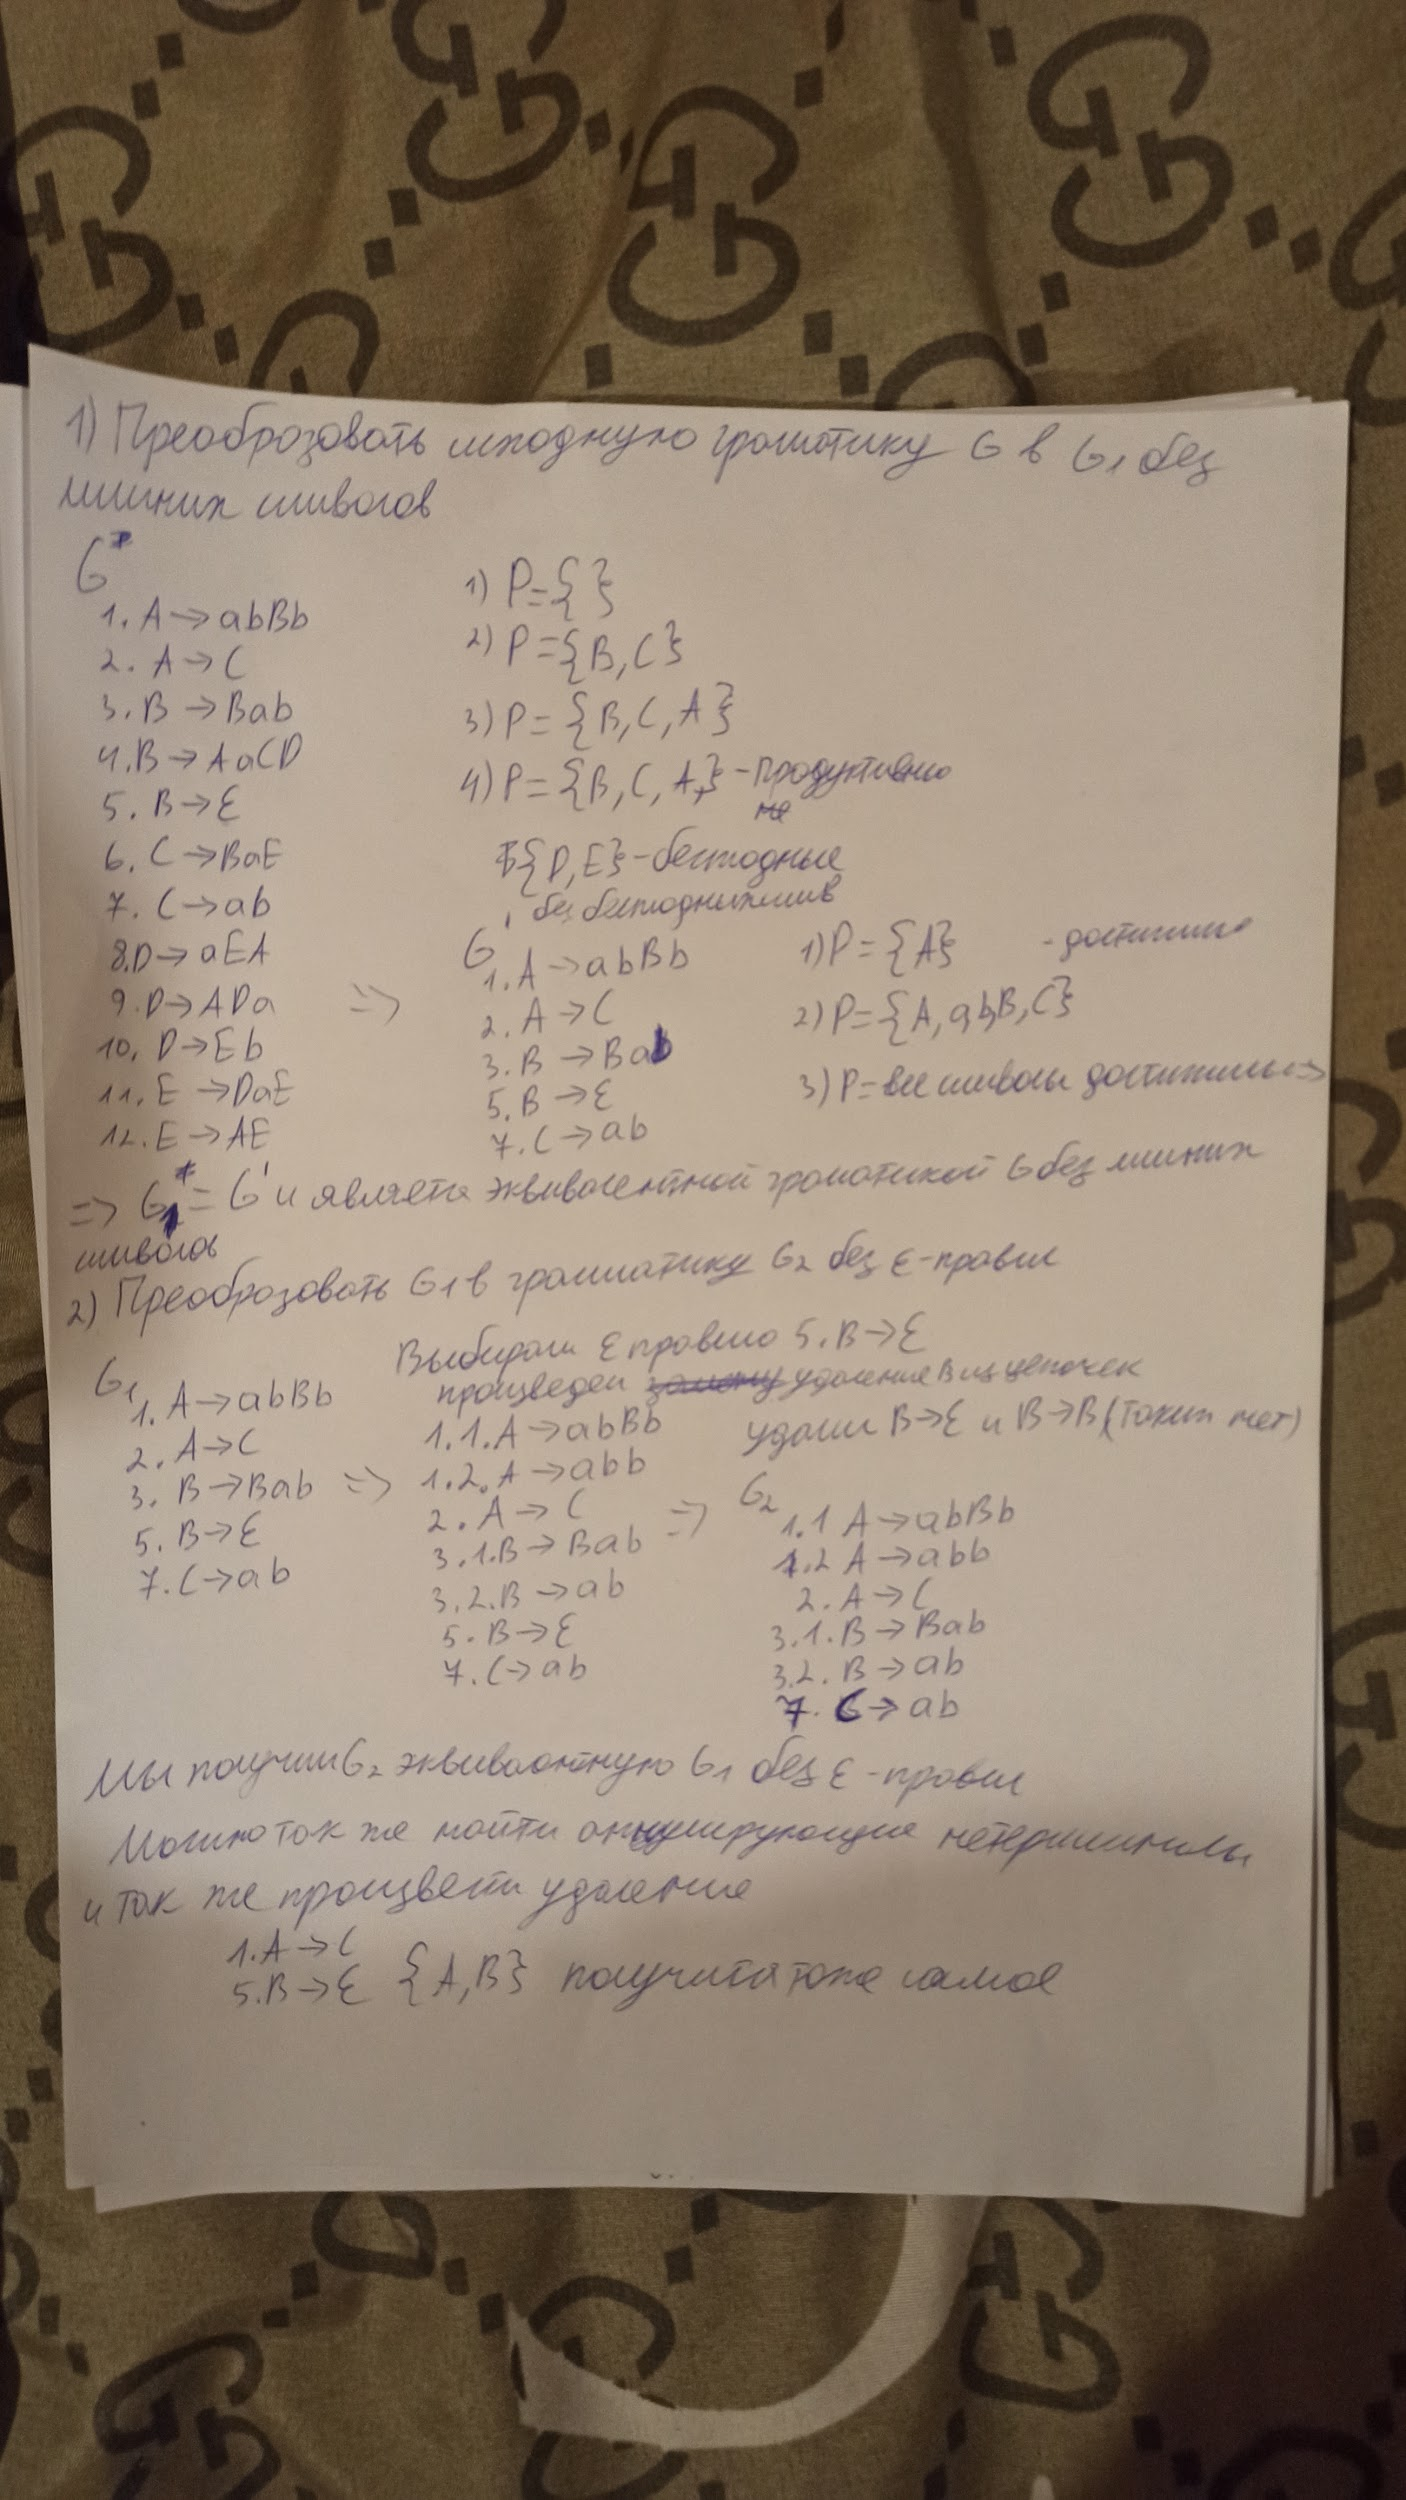 1) Преобразовать исходную грамматику G в G1 без
лишних символов
G
1. A → abBb
2. A → C
3. B → Bab
4. B → AaCD
5. B → ε
6. C → BaE
7. C → ab
8. D → aEA
9. D → ADa
10. D → Eb
11. E → DaE
12. E → AE
1) P = { }
2) P = {B, C}
3) P = {B, C, A}
4) P = {B, C, A,} - продуктивно
не
{D, E} - бесплодные
без бесплодных симв
=>
G'
1. A → abBb
2. A → C
3. B → Bab
5. B → ε
7. C → ab
1) P = {A} - достижимые
2) P = {A, a, b, B, C}
3) P = все символы достижимы =>
=> G1* = G' и является эквивалентной грамматикой G без лишних
символов
2) Преобразовать G1 в грамматику G2 без ε-правил
G1
1. A → abBb
2. A → C
3. B → Bab =>
5. B → ε
7. C → ab
Выбираем ε правило 5. B → ε
произведем удаление B из цепочек
1.1. A → abBb
1.2. A → abb
2. A → C
3.1. B → Bab
3.2. B → ab
5. B → ε
7. C → ab
удалим B → ε и B → B (таких нет)
=> G2
1.1 A → abBb
1.2 A → abb
2. A → C
3.1. B → Bab
3.2. B → ab
7. C → ab
Мы получили G2 эквивалентную G1 без ε-правил
Можно так же найти аннулирующие нетерминалы
и так же произвести удаление
1. A → C
5. B → ε {A, B} получится тоже самое